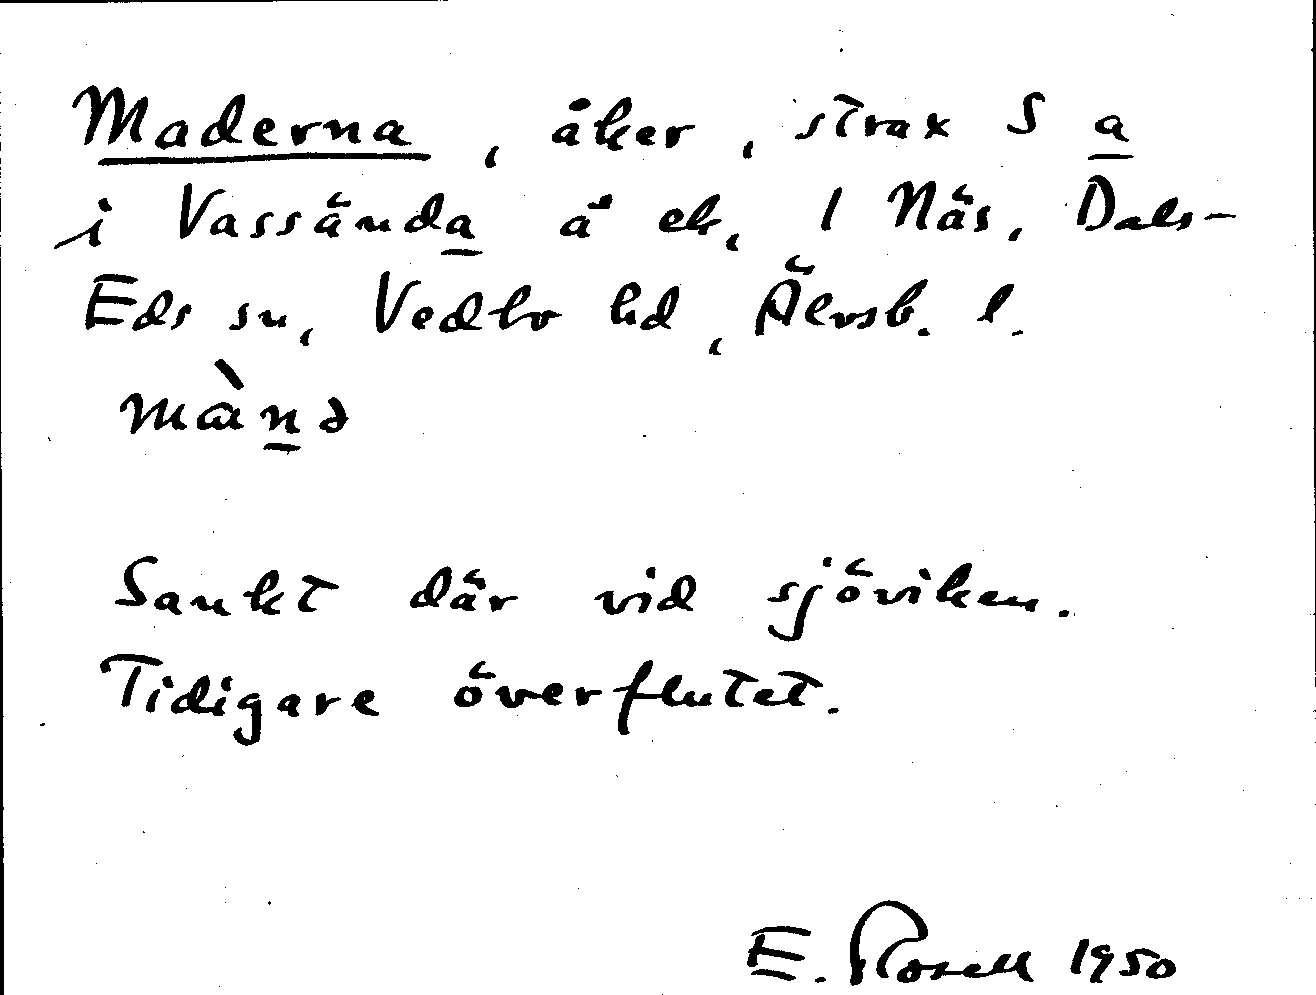 Maderna, åker, strax S a
i Vassända å ek. 1 Näs, Dals-
Eds sn, Vedbo hd, Älvsb. l.
mànə
Sankt där vid sjöviken.
Tidigare överflutet.
E. Rosell 1950